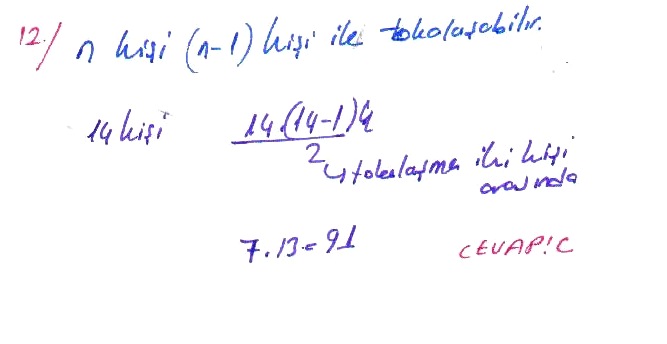 12./ n kişi (n-1) kişi ile tokalaşabilir.
14 kişi 14.(14-1)
2
↳ tokalaşma iki kişi
arasında
7.13=91 CEVAP:C